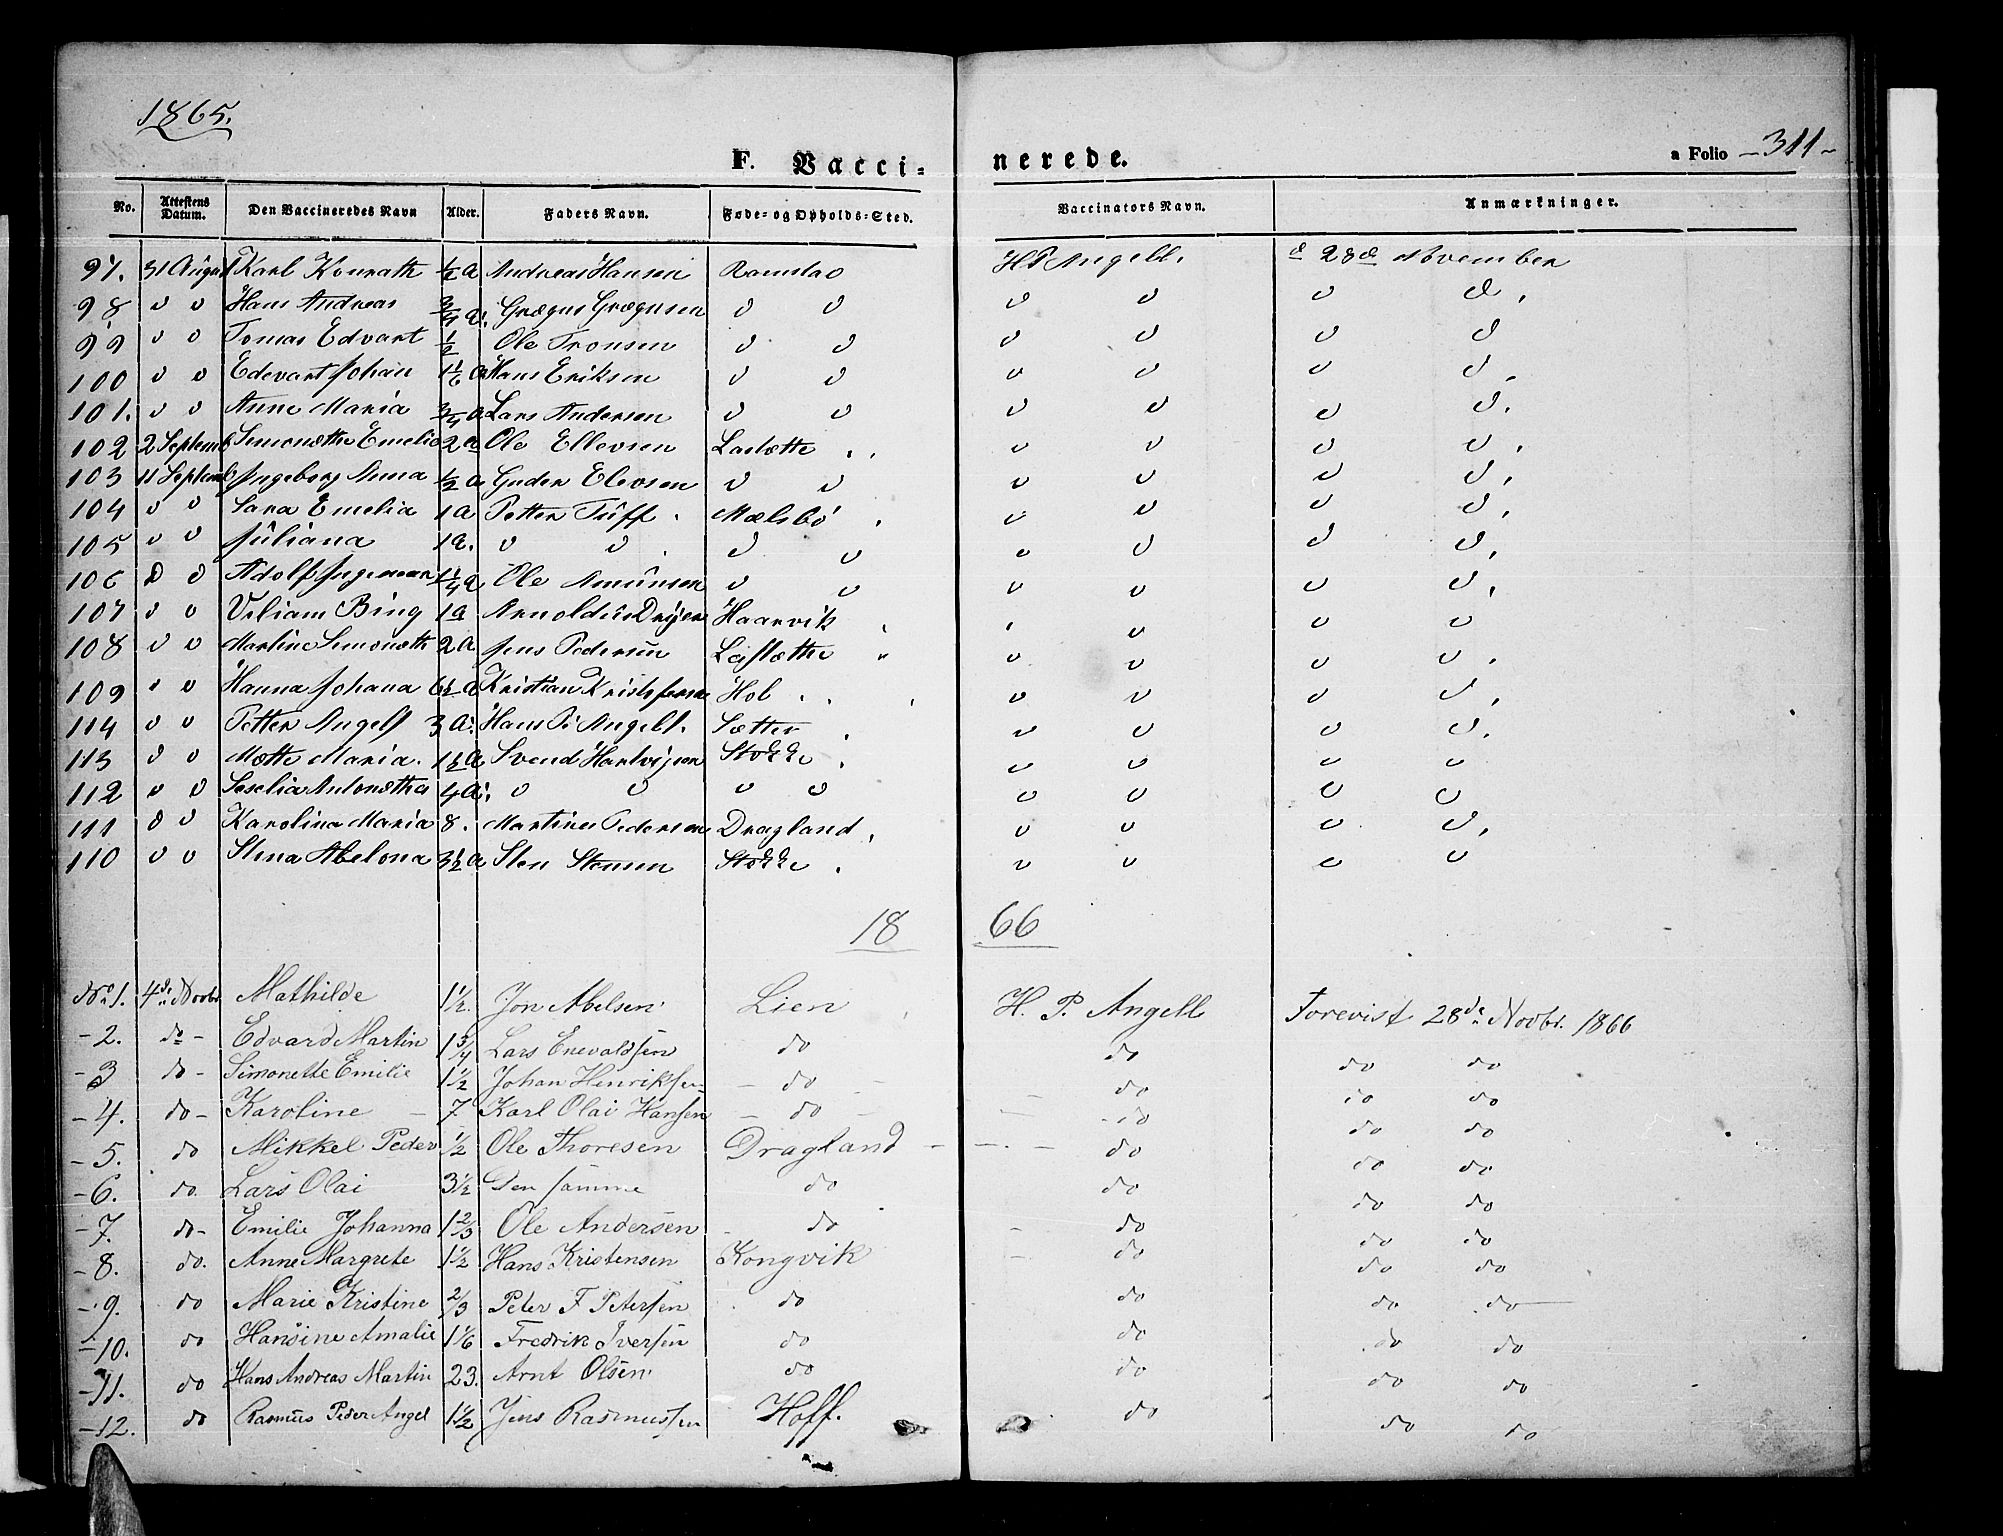 1865.
F. Vacci= nerede. a Folio -311-
No. Attestens Datum. Den Vaccineredes Navn Alder. Faders Navn. Føde- og Opholds-Sted. Vaccinators Navn. Anmærkninger.
97. 31 August Karl Konrath ½ a Andreas Hansen Ramstad H P Angell. d 28de November
98 v v Hans Andreas ¾ a. Grægus Grægusen v v v v v v.
99 v v Tomas Edvart ½ Ole Tronsen v v v v v v
100 v v Edevart Johan 1⅙ a Hans Eriksen v v v v v v.
101. v v Anne Maria ¾ a Lars Andersen v v v v v v.
102 2 Septemb Simonætha Emelia 2 a Ole Ellevsen Laslætte v v v v.
103 11 Septemb Ingeborg Anna ½ a Guder Elevsen v v v v v v.
104 v v Sara Emelia 1 a Petter Tuff. Mælsbö. v v v v.
105 v v Juliana 1 a. v v. v v v v v v.
106 D v Adolf Ingeman 1¼ a Ole Amunsen v v v v v v.
107 v v Viliam Bing 1 a Arnoldus Dreyer Haarvik. v v v
108 v v Martine Simonæth 2 a Jens Pedersen Lejslætte v v v v.
109 v v Hanna Johana 6½ a Kristian Kristofersen Hol. v v v v.
114 v v Petter Angell 3 a. Hans P. Angell. Sætter. v v v v.
113 v v Mætte Maria. 1½ a Svend Hartvigsen Stokke. v v v v
112 v v Seselia Antonætha 4 a. v v v v v v v v
111 v v Karolina Maria 8. Martines Pedersen Dragland. v v v v.
110 v v Stina Abelona 3½ a Sten Stensen Stokke. v v v v
18 66
No 1. 4de Novbr. Mathilde 1½. Jon Abelsen. Lien H. P. Angell Forevist 28de Novbr. 1866
-2. do - Edvard Martin 1¾ Lars Enevaldsen do do do do
-3 do - Simonette Emilie 1½ Johan Henriksen - do - do do do
-4. do - Karoline - 7 Karl Olai Hansen - do - do do do
-5. do Mikkel Peder ½ Ole Thoresen Dragland - do do do
-6. do. Lars Olai 3½ Den samme do do do do
-7. do - Emilie Johanna 1⅔ Ole Andersen do do do do
-8. do. Anne Margrete 1½ Hans Kristensen Kongvik do do do
-9. do Marie Kristine ⅔ Peter F Petersen do do do do
-10. do Hansine Amalie 1⅙ Fredrik Iversen do do do do
-11. do Hans Andreas Martin 23. Arnt Olsen. do do do do
-12. do Rasmus Peder Angel 1½ Jens Rasmussen Hoff. do do do